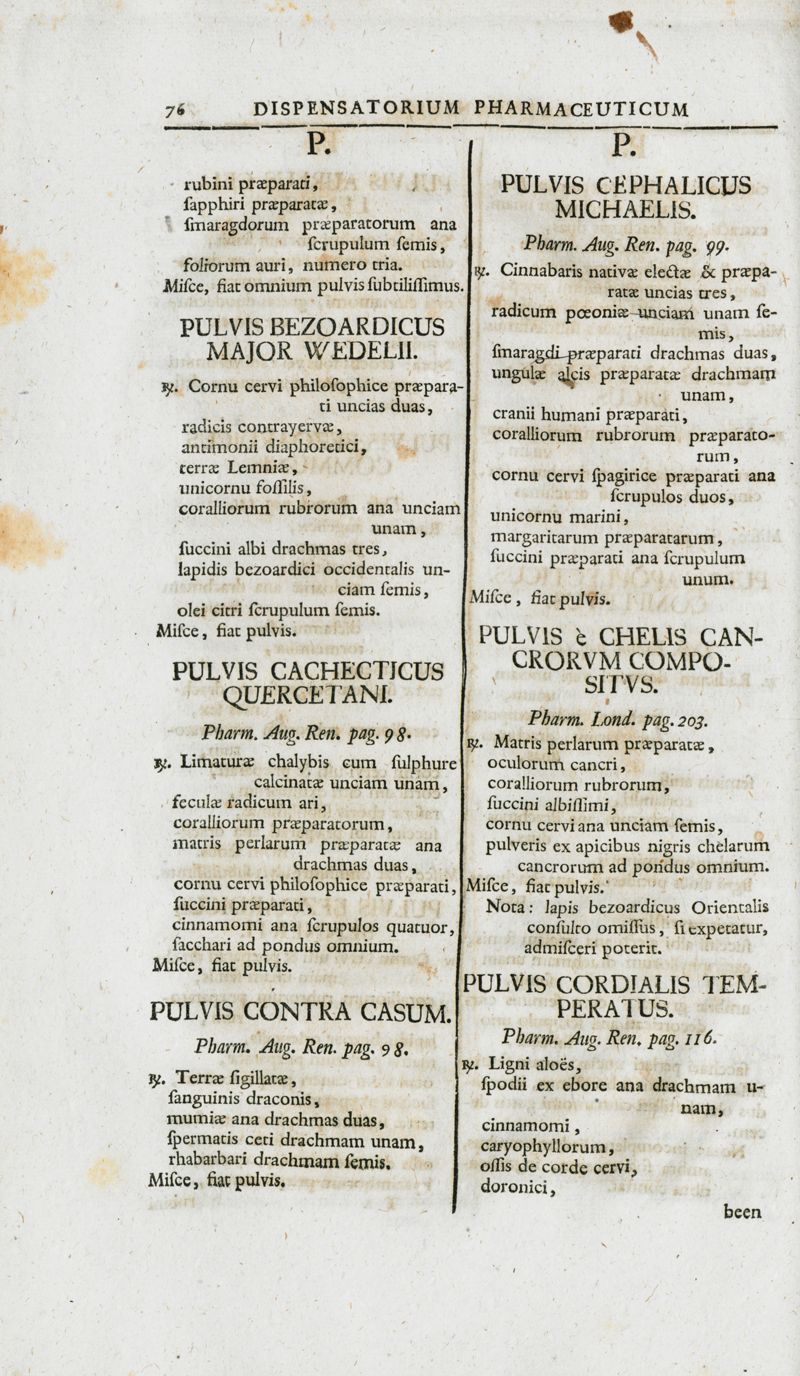 76 DISPENSATORIUM PHARMACEUTICUM
P.
rubini præparati,
ſapphiri præparatæ,
ſmaragdorum præparatorum ana
ſcrupulum ſemis,
foliorum auri, numero tria.
Miſce, fiat omnium pulvis ſubtiliſſimus.
PULVIS BEZOARDICUS
MAJOR WEDELII.
℞. Cornu cervi philoſophice præpara-
ti uncias duas,
radicis contrayervæ,
antimonii diaphoretici,
terræ Lemniæ,
unicornu foſſilis,
coralliorum rubrorum ana unciam
unam,
ſuccini albi drachmas tres,
lapidis bezoardici occidentalis un-
ciam ſemis,
olei citri ſcrupulum ſemis.
Miſce, fiat pulvis.
PULVIS CACHECTICUS
QUERCETANI.
Pharm. Aug. Ren. pag. 98.
℞. Limaturæ chalybis cum ſulphure
calcinatæ unciam unam,
feculæ radicum ari,
coralliorum præparatorum,
matris perlarum præparatæ ana
drachmas duas,
cornu cervi philoſophice præparati,
ſuccini præparati,
cinnamomi ana ſcrupulos quatuor,
ſacchari ad pondus omnium.
Miſce, fiat pulvis.
PULVIS CONTRA CASUM.
Pharm. Aug. Ren. pag. 98.
℞. Terræ ſigillatæ,
ſanguinis draconis,
mumiæ ana drachmas duas,
ſpermatis ceti drachmam unam,
rhabarbari drachmam ſemis.
Miſce, fiat pulvis.
P.
PULVIS CEPHALICUS
MICHAELIS.
Pharm. Aug. Ren. pag. 99.
℞. Cinnabaris nativæ electæ & præpa-
ratæ uncias tres,
radicum pœoniæ unciam unam ſe-
mis,
ſmaragdi præparati drachmas duas,
ungulæ alcis præparatæ drachmam
unam,
cranii humani præparati,
coralliorum rubrorum præparato-
rum,
cornu cervi ſpagirice præparati ana
ſcrupulos duos,
unicornu marini,
margaritarum præparatarum,
ſuccini præparati ana ſcrupulum
unum.
Miſce, fiat pulvis.
PULVIS è CHELIS CAN-
CRORVM COMPO-
SITVS.
Pharm. Lond. pag. 203.
℞. Matris perlarum præparatæ,
oculorum cancri,
coralliorum rubrorum,
ſuccini albiſſimi,
cornu cervi ana unciam ſemis,
pulveris ex apicibus nigris chelarum
cancrorum ad pondus omnium.
Miſce, fiat pulvis.
Nota: lapis bezoardicus Orientalis
conſulto omiſſus, ſi expetatur,
admiſceri poterit.
PULVIS CORDIALIS TEM-
PERATUS.
Pharm. Aug. Ren. pag. 116.
℞. Ligni aloës,
ſpodii ex ebore ana drachmam u-
nam,
cinnamomi,
caryophyllorum,
oſſis de corde cervi,
doronici,
been